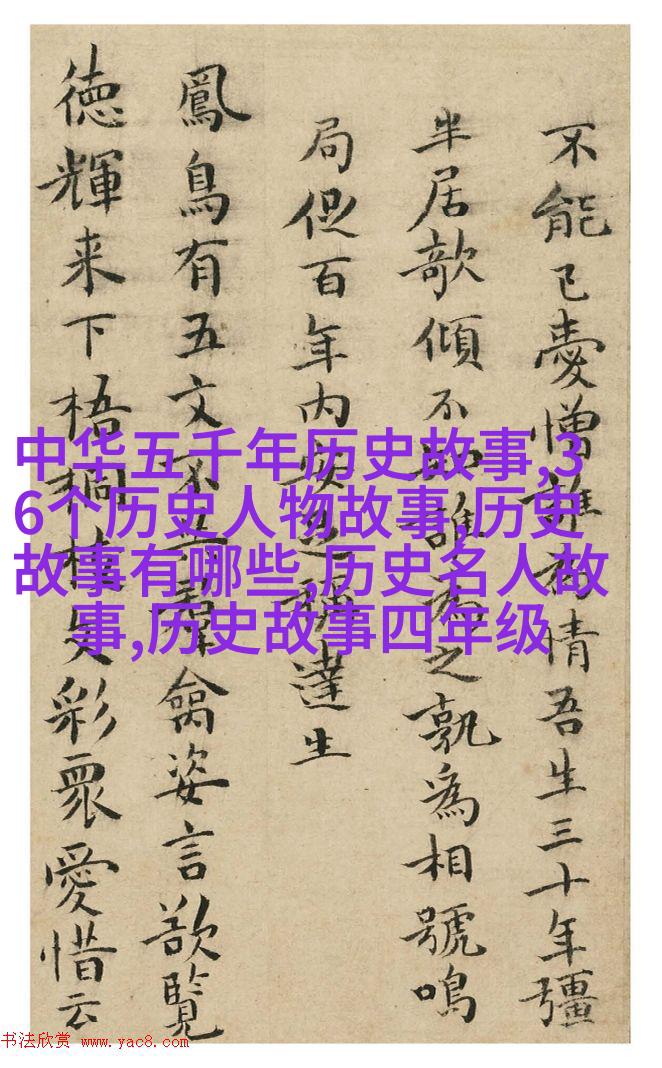 不能已憂憎誰情吾生三十年彊
半居欹傾不知誰為之孰為相號鳴
局促百年内達生
鳳鳥有五文不羣禽姿言欲覽
德輝来下梧桐枝彩眾愛惜云
中华五千年历史故事,3
6个历史人物故事,历史
故事有哪些,历史名人故
事,历史故事四年级
书法欣赏 www.yac8.com